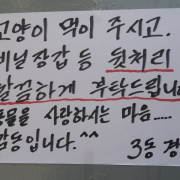 고양이 먹이 주시고.
비닐장갑 등 뒷처리
깔끔하게 부탁드립니
동물을 사랑하시는 마음....
감동입니다.^^
3동 경